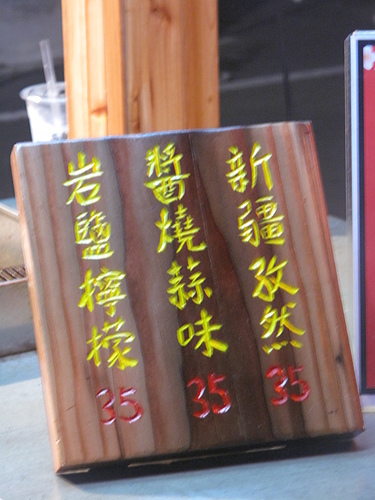 新疆孜然 35
醬燒蒜味 35
岩鹽檸檬 35